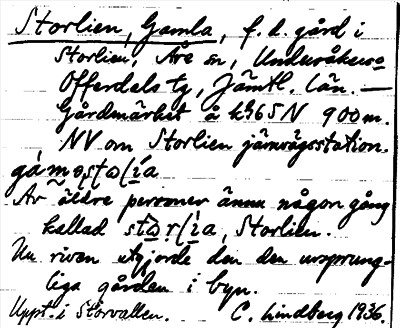 Storlien, Gamla, f.d. gård i
Storlien, Åre sn, Undersåkers o
Offerdals tg, Jämtl. län. —
Gårdmärket å k365N 900 m.
NV om Storlien järnvägsstation.
Av äldre personer ännu någon gång
kallad Storlien.
Nu riven utgjorde den den ursprung-
liga gården i byn.
Uppt. i Storvallen. C. Lindberg 1936.